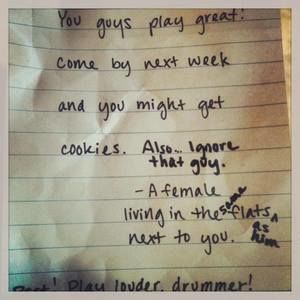 You guys play great!
come by next week
and you might get
cookies. Also... Ignore
that guy.
-A female
living in the same flats as him
next to you.
Psst! Play louder, drummer!